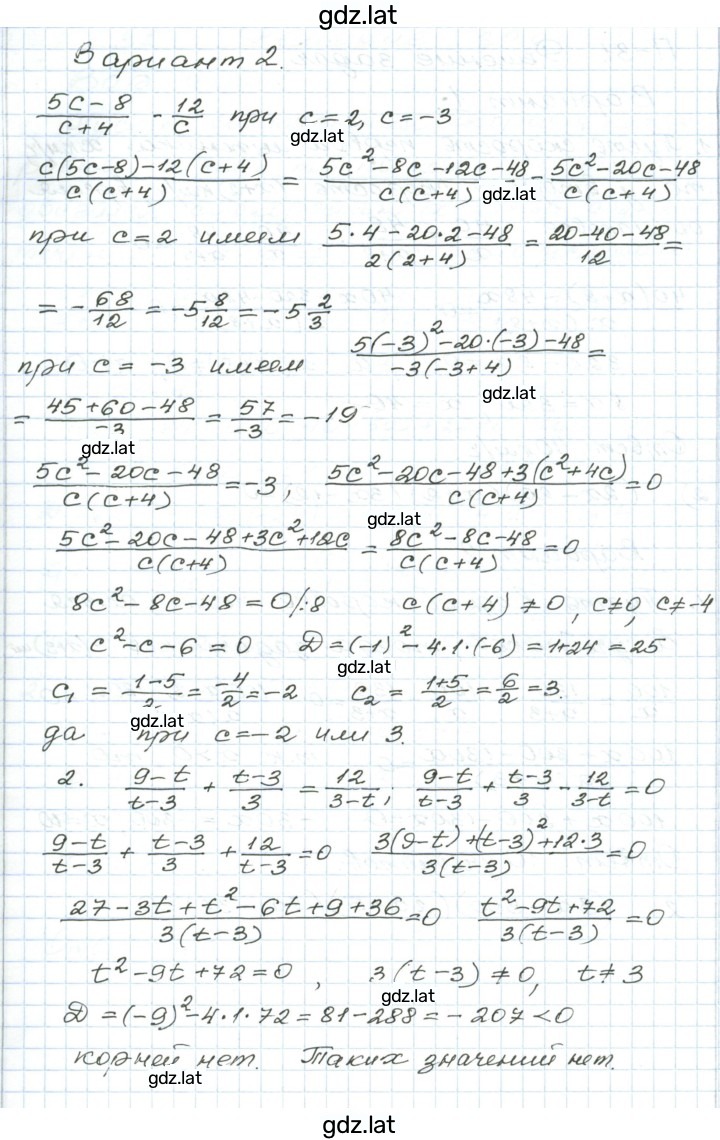 gdz.lat
Вариант 2.
(5c-8)/(c+4) - 12/c при c=2, c=-3
gdz.lat
(c(5c-8)-12(c+4))/(c(c+4)) = (5c²-8c-12c-48)/(c(c+4)) - (5c²-20c-48)/(c(c+4))
gdz.lat
при c=2 имеем (5·4-20·2-48)/(2(2+4)) = (20-40-48)/12 =
= -68/12 = -5 8/12 = -5 2/3
при c = -3 имеем (5(-3)²-20·(-3)-48)/(-3(-3+4)) =
gdz.lat
= (45+60-48)/-3 = 57/-3 = -19
gdz.lat
(5c²-20c-48)/(c(c+4)) = -3; (5c²-20c-48+3(c²+4c))/(c(c+4)) = 0
gdz.lat
(5c²-20c-48+3c²+12c)/(c(c+4)) = (8c²-8c-48)/(c(c+4)) = 0
8c²-8c-48=0/:8 c(c+4)≠0, c≠0, c≠-4
c²-c-6=0 D=(-1)²-4·1·(-6)=1+24=25
gdz.lat
c₁ = (1-5)/2 = -4/2 = -2 c₂ = (1+5)/2 = 6/2 = 3.
gdz.lat
да при c=-2 или 3.
2. (9-t)/(t-3) + (t-3)/3 = 12/(3-t); (9-t)/(t-3) + (t-3)/3 - 12/(3-t) = 0
(9-t)/(t-3) + (t-3)/3 + 12/(t-3) = 0 (3(9-t)+(t-3)²+12·3)/(3(t-3)) = 0
(27-3t+t²-6t+9+36)/(3(t-3)) = 0 (t²-9t+72)/(3(t-3)) = 0
t²-9t+72=0, 3(t-3)≠0, t≠3
gdz.lat
D=(-9)²-4·1·72=81-288=-207<0
корней нет. Таких значений нет.
gdz.lat
gdz.lat